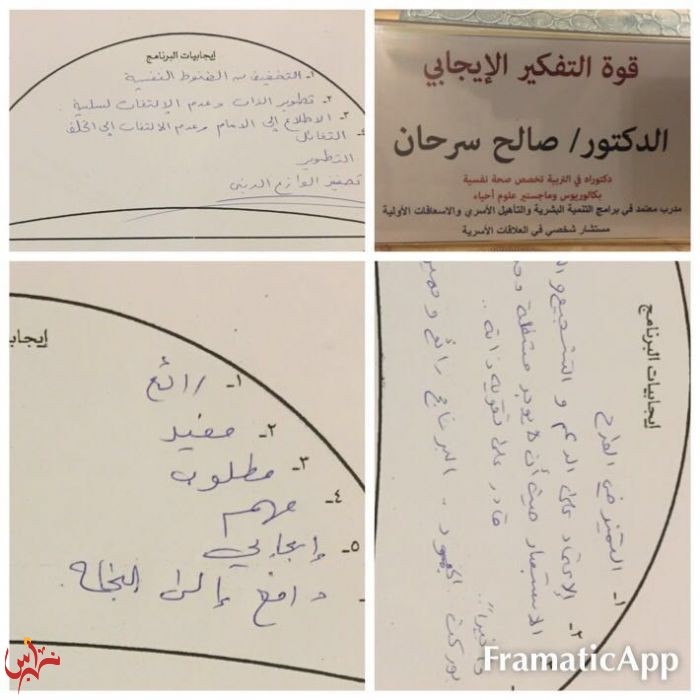 إيجابيات البرنامج
١- التخفيف من الضغوط النفسية
٢- تطوير الذات وعدم الالتفات لسلبية
٣- الاطلاع إلى الامام وعدم الالتفات إلى الخلف
التفائل
التطوير
تصفير الوازع الديني
قوة التفكير الإيجابي
الدكتور/ صالح سرحان
دكتوراه في التربية تخصص صحة نفسية
بكالوريوس وماجستير علوم أحياء
مدرب معتمد في برامج التنمية البشرية والتأهيل الأسري والاسعافات الأولية
مستشار شخصي في العلاقات الأسرية
إيجابيا
١- رائع
٢- مفيد
٣- مطلوب
٤- مهم
٥- إيجابي
دافع إلى
إيجابيات البرنامج
١- التميز في الطرح
٢- الإعتماد على الدعم و التشجيع
الاستبصار حيث أن لا يوجد
قادر على تقوية ذاته ..
بوركت الجهود .. البرنامج رائع و
FramaticApp